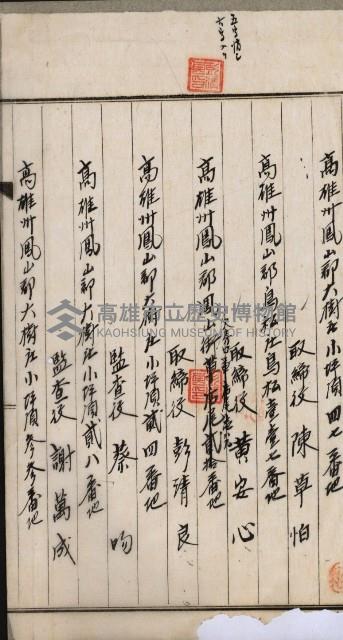 高雄州鳳山郡大樹庄小坪頂四七番地
取締役 陳草怕
高雄州鳳山郡鳥松庄鳥松壹壹七番地
取締役 黃安心
高雄州鳳山郡鳳山街
番地
取締役 彭清良
高雄州鳳山郡大樹庄小坪頂貳四番地
監查役 蔡吻
高雄州鳳山郡大樹庄小坪頂貳八番地
監查役 謝萬成
高雄州鳳山郡大樹庄小坪頂參參番地
高雄市立歷史博物館
KAOHSIUNG MUSEUM OF HISTORY